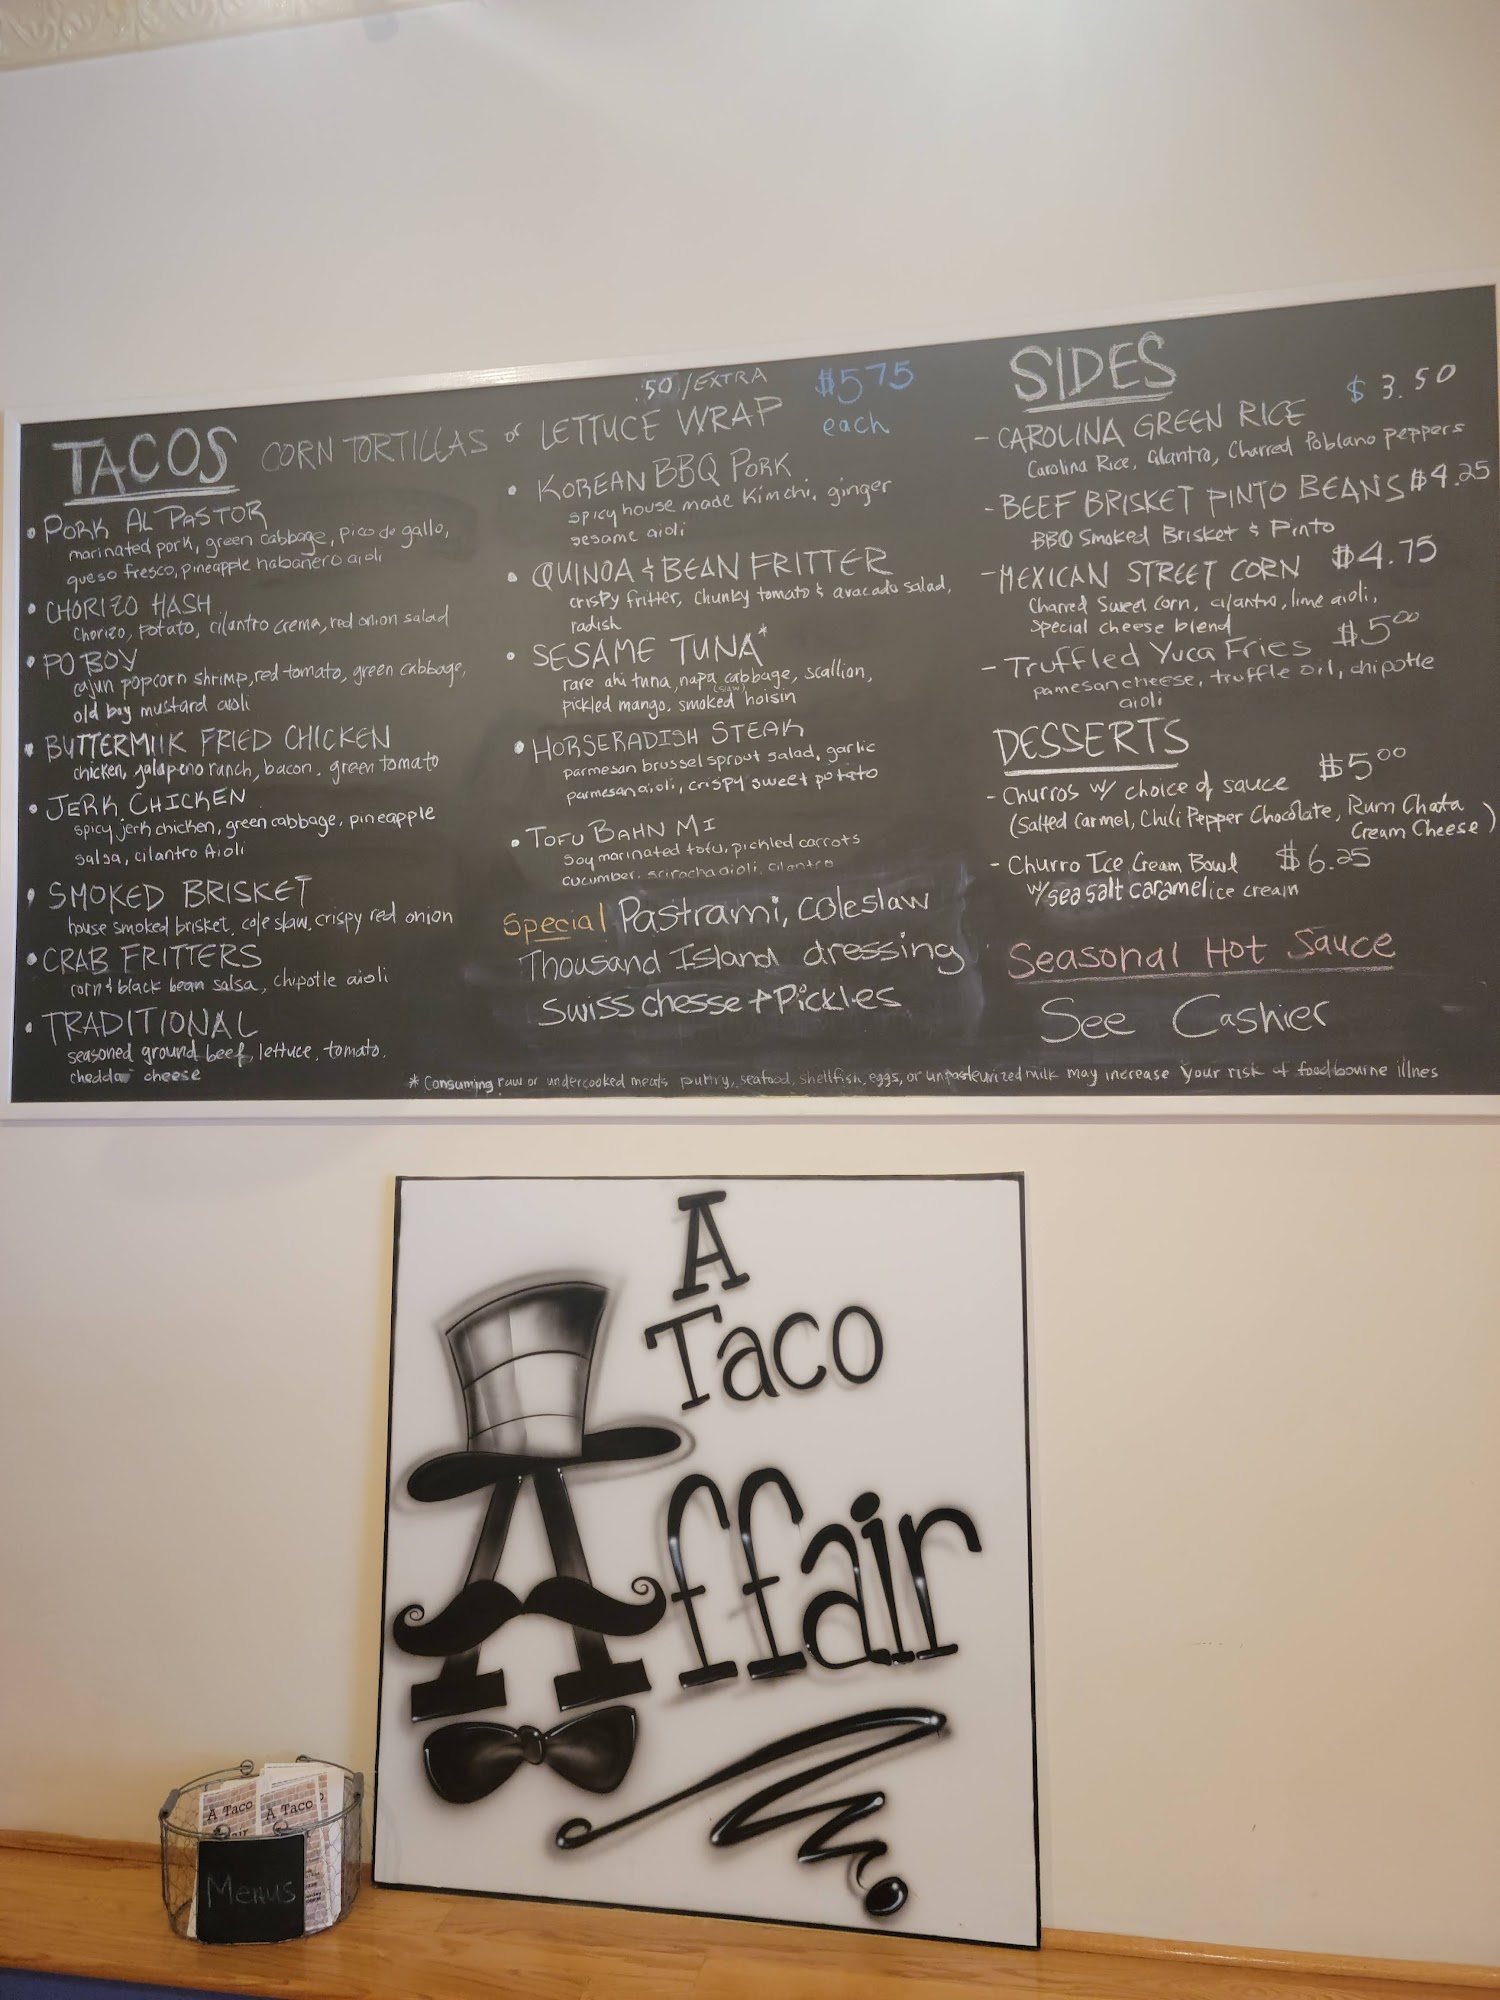 TACOS CORN TORTILLAS or LETTUCE WRAP
.50/EXTRA
$5.75
each
• PORK AL PASTOR
marinated pork, green cabbage, pico de gallo,
queso fresco, pineapple habanero aioli
• CHORIZO HASH
Chorizo, potato, cilantro crema, red onion salad
• PO BOY
cajun popcorn shrimp, red tomato, green cabbage,
old bay mustard aioli
• BUTTERMILK FRIED CHICKEN
chicken, jalapeno ranch, bacon, green tomato
• JERK CHICKEN
spicy jerk chicken, green cabbage, pineapple
salsa, cilantro Aioli
• SMOKED BRISKET
house smoked brisket, cole slaw, crispy red onion
• CRAB FRITTERS
corn & black bean salsa, chipotle aioli
• TRADITIONAL
seasoned ground beef, lettuce, tomato,
cheddar cheese
• KOREAN BBQ PORK
spicy house made Kimchi, ginger
sesame aioli
• QUINOA & BEAN FRITTER
crispy fritter, chunky tomato & avacado salad,
radish
• SESAME TUNA*
rare ahi tuna, napa cabbage, scallion,
(slaw)
pickled mango, smoked hoisin
• HORSERADISH STEAK
parmesan brussel sprout salad, garlic
parmesan aioli, crispy sweet potato
• TOFU BAHN MI
soy marinated tofu, pickled carrots
cucumber, sriracha aioli, cilantro
Special Pastrami, coleslaw
Thousand Island dressing
Swiss chesse + Pickles
SIDES
- CAROLINA GREEN RICE $3.50
Carolina Rice, Cilantro, Charred Poblano peppers
- BEEF BRISKET PINTO BEANS $4.25
BBQ Smoked Brisket & Pinto
- MEXICAN STREET CORN $4.75
Charred Sweet corn, cilantro, lime aioli,
special cheese blend
- Truffled Yuca Fries $5.00
pamesan cheese, truffle oil, chipotle
aioli
DESSERTS
- Churros w/ choice of sauce $5.00
(Salted Carmel, Chili Pepper Chocolate, Rum Chata
Cream Cheese)
- Churro Ice Cream Bowl $6.25
w/ sea salt caramel ice cream
Seasonal Hot Sauce
See Cashier
* Consuming raw or undercooked meats, poultry, seafood, shellfish, eggs, or unpasteurized milk may increase your risk of foodbourine illnes
A
Taco
Affair
A Taco
A Taco
Menus